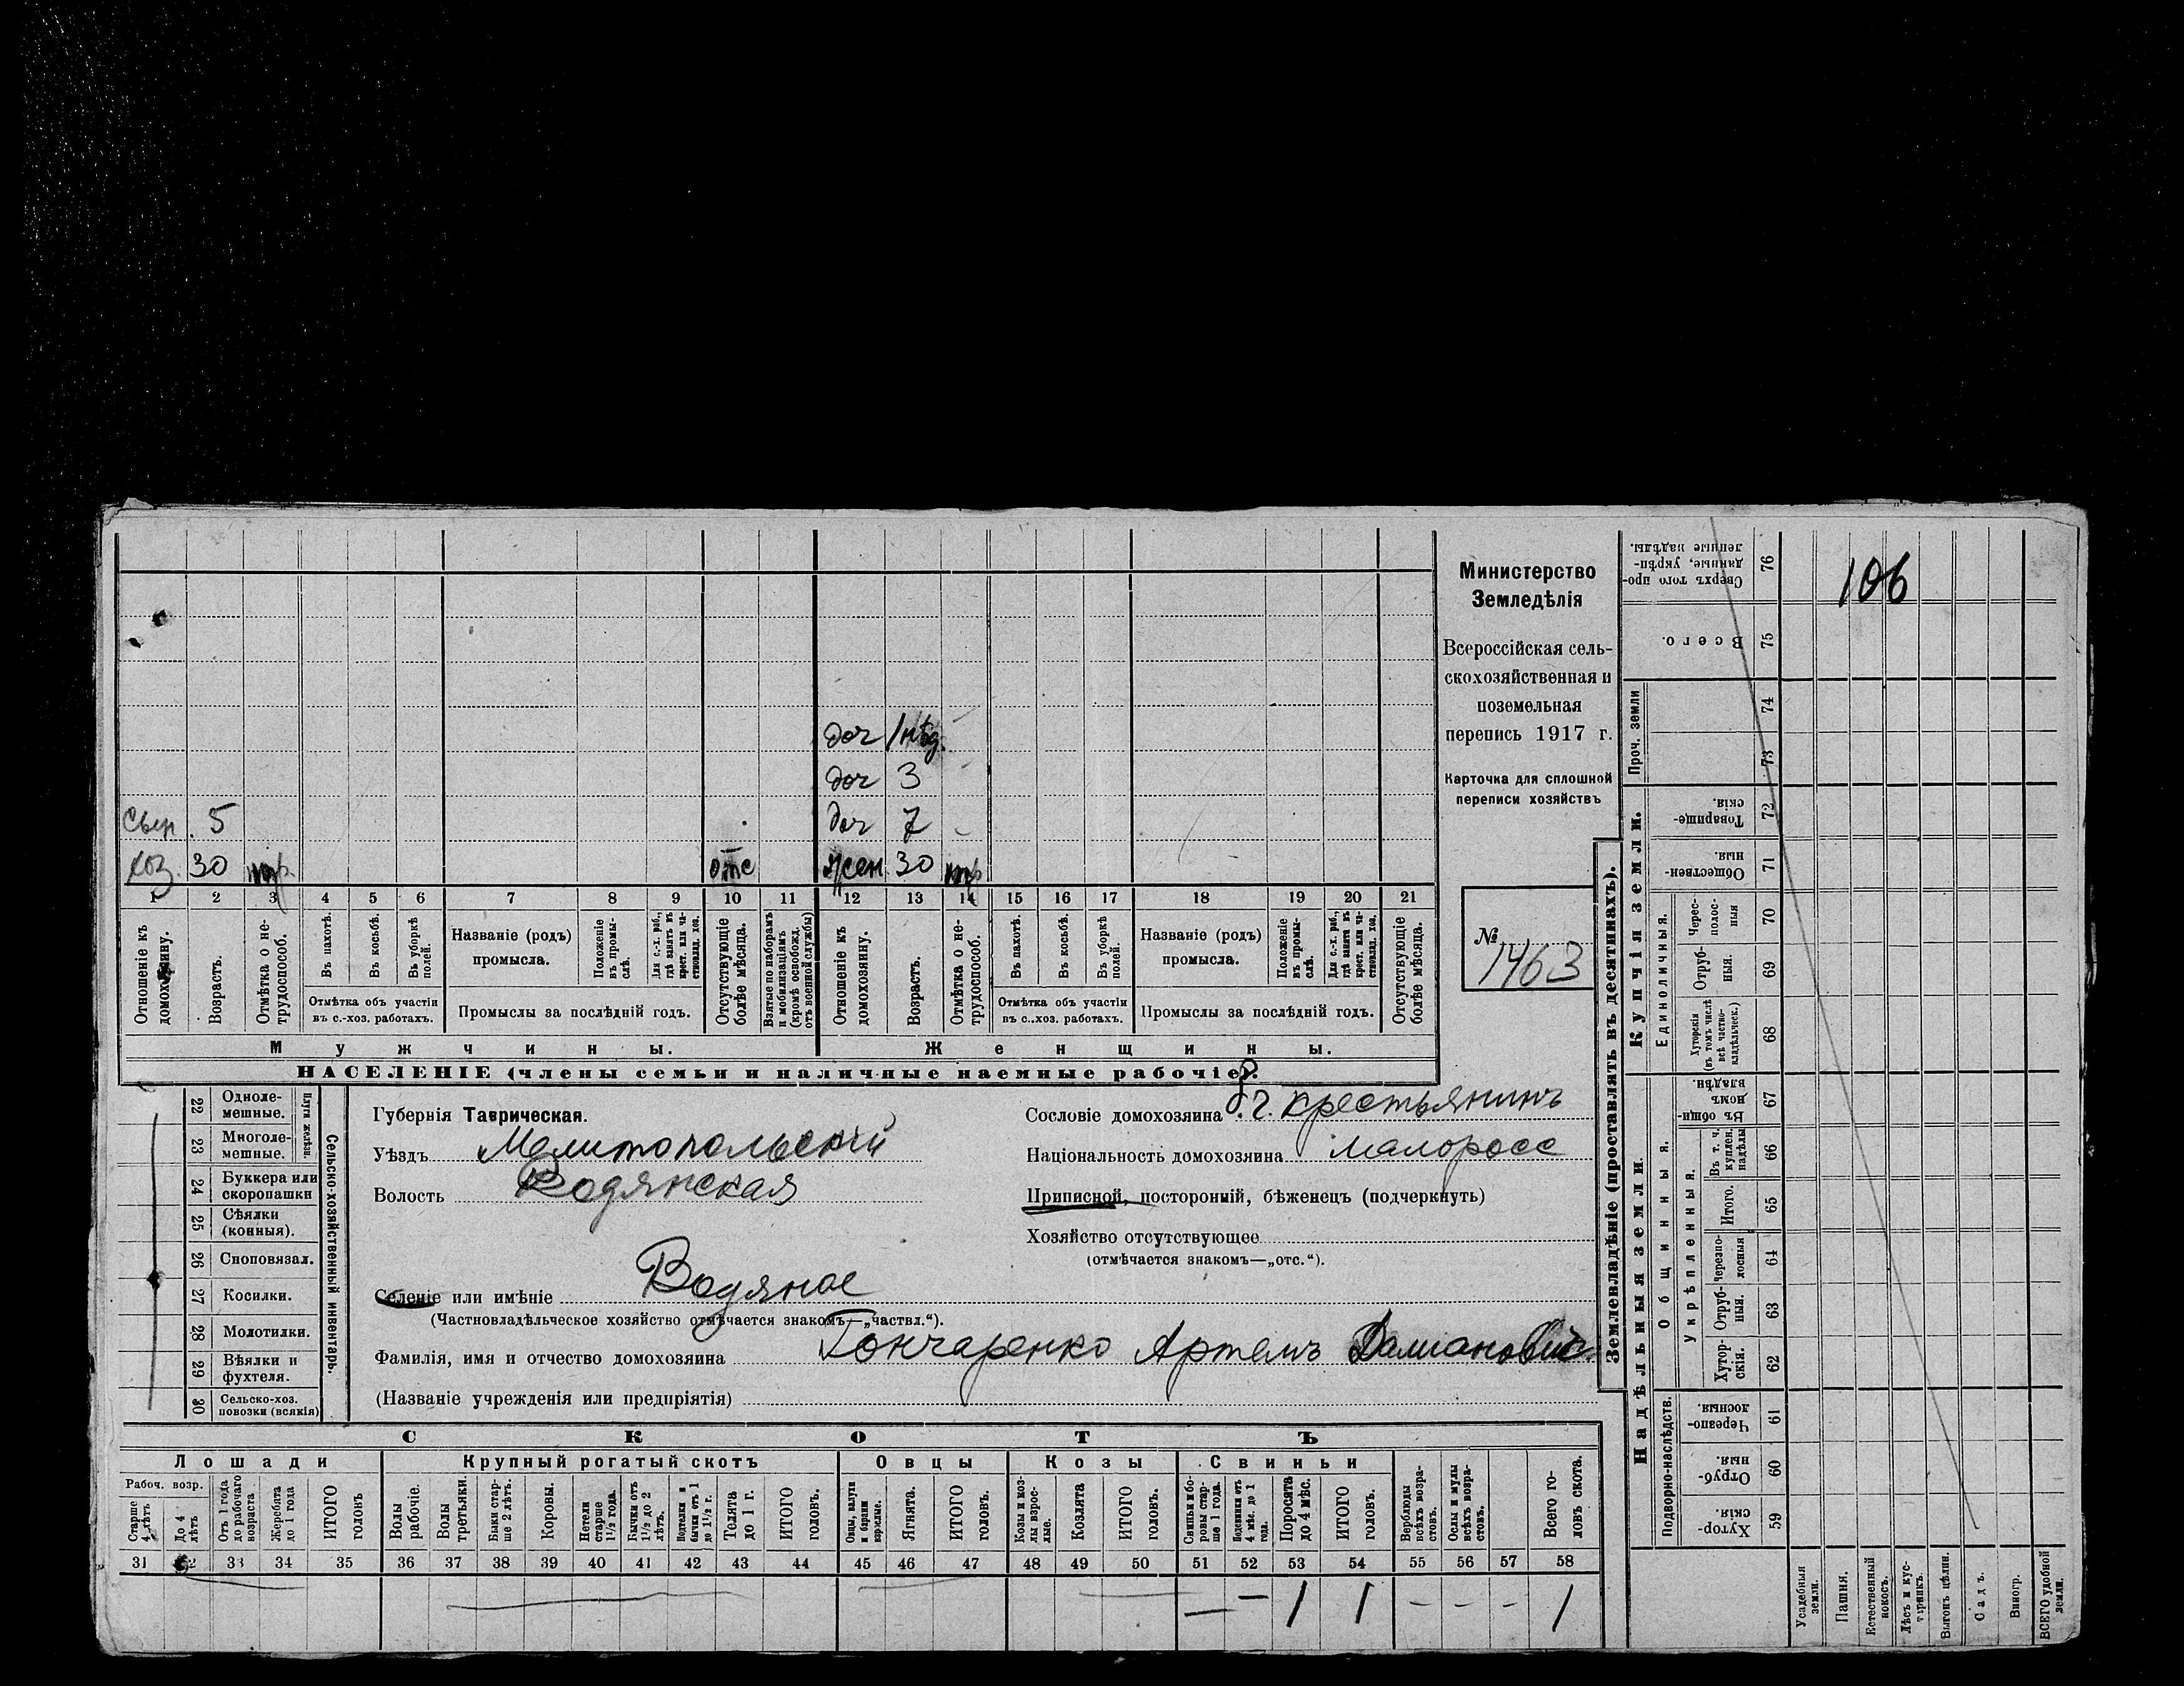 Министерство
Земледѣлія
Всероссійская сель-
скохозяйственная и
поземельная
перепись 1917 г.
Карточка для сплошной
переписи хозяйствъ
№
1463
106
доч 1
доч 3
сын 5 доч 7
хоз. 30 отс жен 30
1 2 3 4 5 6 7 8 9 10 11 12 13 14 15 16 17 18 19 20 21
Отношеніе къ домохозяину.
Возрастъ.
Отмѣтка о не-трудоспособ.
Въ пахотѣ.
Въ косьбѣ.
Въ уборкѣ полей.
Отмѣтка объ участіи
въ с.-хоз. работахъ.
Названіе (родъ)
промысла.
Положеніе въ промы-слѣ.
Для с.-х. раб., гдѣ занятъ въ крест. или ча-стновлад. хоз.
Промыслы за послѣдній годъ.
Отсутствующіе болѣе мѣсяца.
Взятые по наборамъ и мобилизаціямъ (кромѣ освобожд. отъ военной службы)
Отношеніе къ домохозяину.
Возрастъ.
Отмѣтка о не-трудоспособ.
Въ пахотѣ.
Въ косьбѣ.
Въ уборкѣ полей.
Отмѣтка объ участіи
въ с.-хоз. работахъ.
Названіе (родъ)
промысла.
Положеніе въ промы-слѣ.
Для с.-х. раб., гдѣ занята въ крест. или ча-стновлад. хоз.
Промыслы за послѣдній годъ.
Отсутствующіе болѣе мѣсяца.
Мужчины. Женщины.
НАСЕЛЕНІЕ (члены семьи и наличные наемные рабочіе).
22 Одноле-мешные.
23 Многоле-мешные.
Плуги желѣзн.
24 Буккера или скоропашки
25 Сѣялки (конныя).
26 Сноповязал.
27 Косилки.
28 Молотилки.
29 Вѣялки и фухтеля.
30 Сельско-хоз. повозки (всякія)
Сельско-хозяйственный инвентарь.
Губернія Таврическая.
Уѣздъ Мелитопольскій
Волость Водянская
Селеніе или имѣніе Водяное
(Частновладѣльческое хозяйство отмѣчается знакомъ—„частвл.“).
Фамилія, имя и отчество домохозяина Гончаренко Артемъ Даміановичъ
(Названіе учрежденія или предпріятія)
Сословіе домохозяина крестьянинъ
Національность домохозяина малоросс
Приписной, посторонній, бѣженецъ (подчеркнуть)
Хозяйство отсутствующее
(отмѣчается знакомъ—„отс.“).
СКОТЪ
Лошади Крупный рогатый скотъ Овцы Козы Свиньи
Рабоч. возр.
Старше 4 лѣтъ
До 4 лѣтъ
Отъ 1 года до рабочаго возраста
Жеребята до 1 года
ИТОГО головъ
Волы рабочіе.
Волы третьяки.
Быки стар-ше 2 лѣтъ.
Коровы.
Нетели старше 1½ года.
Бычки отъ 1½ до 2 лѣтъ.
Подтелки и бычки отъ 1 до 1½ г.
Телята до 1 г.
ИТОГО головъ.
Овцы, валухи и бараны взрослые.
Ягнята.
ИТОГО головъ.
Козы и коз-лы взрос-лые.
Козлята
ИТОГО головъ.
Свиньи и бо-ровы стар-ше 1 года.
Подсвинки отъ 4 мѣс. до 1 года.
Поросята до 4 мѣс.
ИТОГО головъ.
Верблюды всѣхъ возра-стовъ.
Ослы и мулы всѣхъ возра-стовъ.
Всего го-ловъ скота.
31 32 33 34 35 36 37 38 39 40 41 42 43 44 45 46 47 48 49 50 51 52 53 54 55 56 57 58
— — 1 1 - - - 1
Землевладѣніе (проставлять въ десятинахъ).
Надѣльныя земли
Купчія земли.
Проч. земли
Подворно-наслѣдств.
Общинныя.
Укрѣпленныя.
Единоличныя.
Хутор-скія 59
Отруб-ныя 60
Черезпо-лосныя 61
Хутор-скія. 62
Отруб-ныя. 63
Черезпо-лосныя 64
Итого. 65
Въ т. ч. куплен. надѣлы 66
Въ общин-номъ владѣн. 67
Хуторскія (въ томъ числѣ всѣ частно-владѣльческ.) 68
Отруб-ныя. 69
Черес-полос-ныя 70
Обществен-ныя. 71
Товарище-скія. 72
73
74
Всего. 75
Сверхъ того про-данные, укрѣп-ленные надѣлы. 76
Усадебныя земли.
Пашня.
Естественный покосъ.
Лѣсъ и кус-тарникъ.
Выгонъ цѣлин.
Садъ.
Виногр.
ВСЕГО удобной земли.